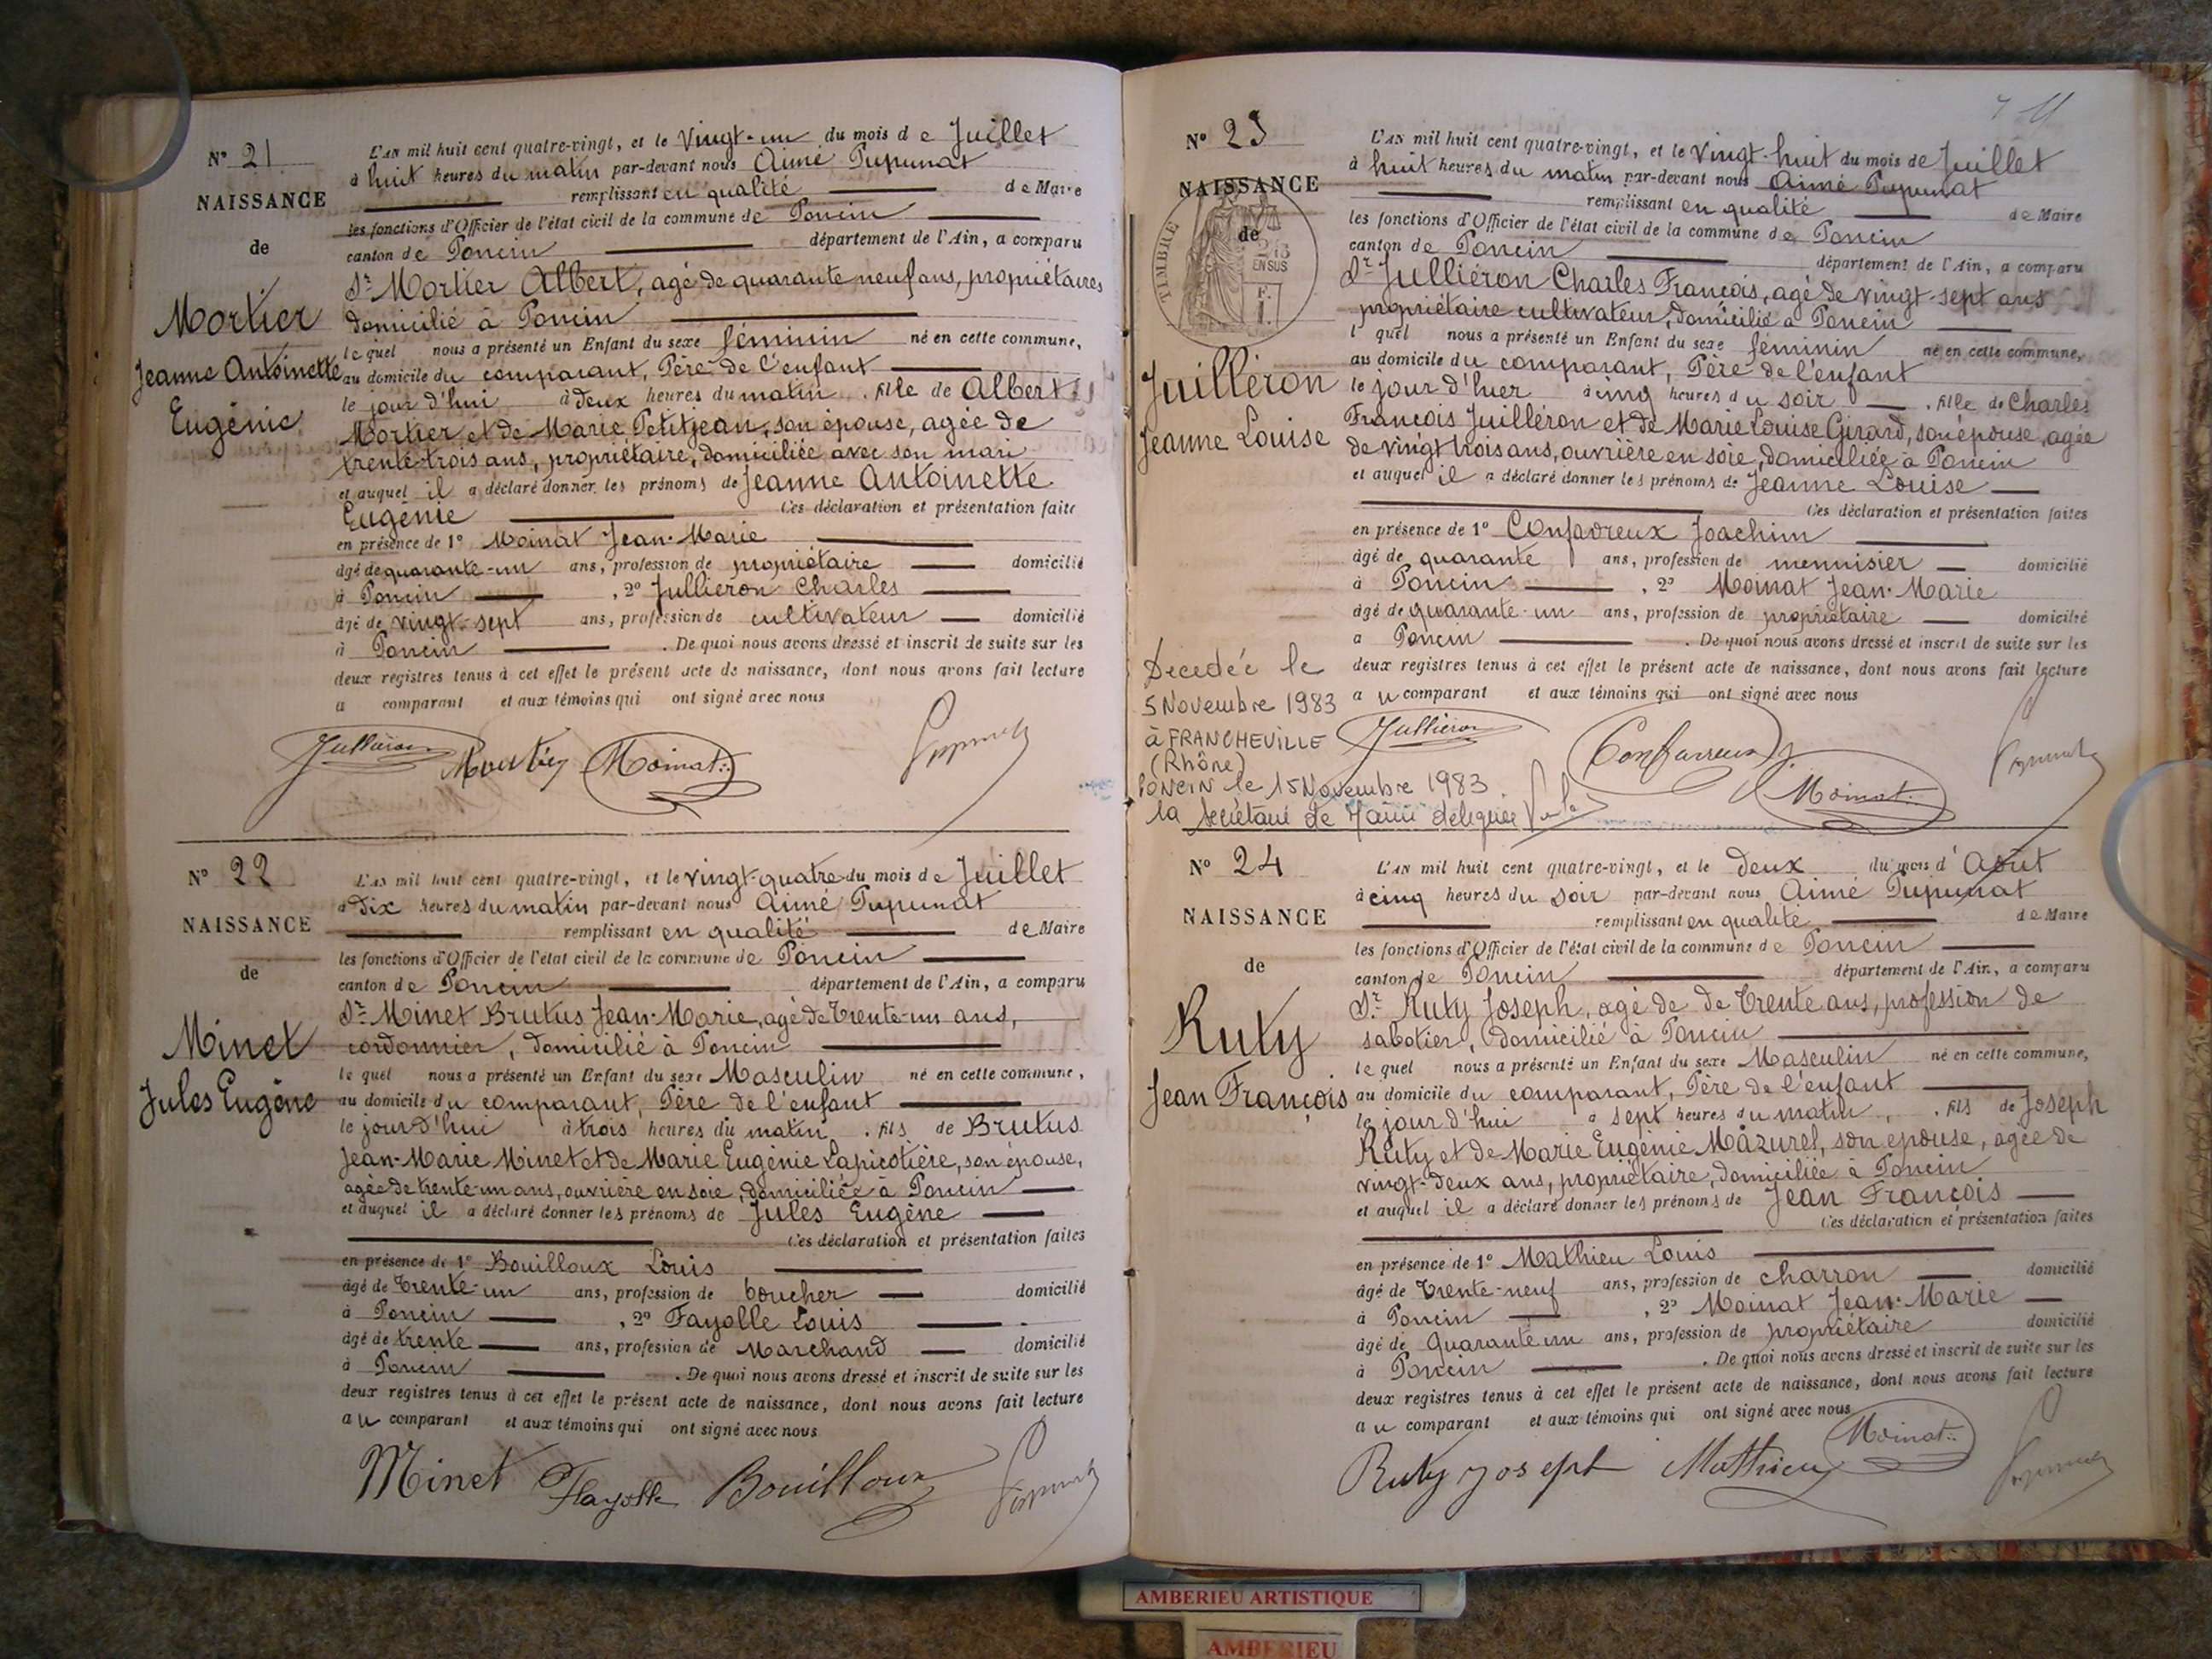 N° 21
NAISSANCE
de
Mortier
Jeanne Antoinette
Eugénie
L'AN mil huit cent quatre-vingt, et le Vingt-un du mois de Juillet
à huit heures du matin par-devant nous Aimé Pupunat
remplissant en qualité de Maire
les fonctions d'Officier de l'état civil de la commune de Poncin
canton de Poncin département de l'Ain, a comparu
Sr Mortier Albert, agé de quarante neuf ans, propriétaires
domicilié à Poncin
lequel nous a présenté un Enfant du sexe féminin né en cette commune,
au domicile du comparant, Père de l'enfant
le jour d'hui à deux heures du matin . fille de Albert
Mortier et de Marie Petitjean, son épouse, agée de
trente-trois ans, propriétaire, domiciliée avec son mari
et auquel il a déclaré donner les prénoms de Jeanne Antoinette
Eugénie Ces déclaration et présentation faite
en présence de 1° Moinat Jean-Marie
âgé de quarante-un ans, profession de propriétaire domicilié
à Poncin , 2° Jullieron Charles
âgé de vingt-sept ans, profession de cultivateur domicilié
à Poncin . De quoi nous avons dressé et inscrit de suite sur les
deux registres tenus à cet effet le présent acte de naissance, dont nous avons fait lecture
a comparant et aux témoins qui ont signé avec nous
Jullieron Mortier Moinat
N° 22
NAISSANCE
de
Minet
Jules Eugène
L'AN mil huit cent quatre-vingt, et le vingt-quatre du mois de Juillet
à Dix heures du matin par-devant nous Aimé Pupunat
remplissant en qualité de Maire
les fonctions d'Officier de l'état civil de la commune de Poncin
canton de Poncin département de l'Ain, a comparu
Sr Minet Brutus Jean-Marie, agé de trente-un ans,
cordonnier, domicilié à Poncin
lequel nous a présenté un Enfant du sexe Masculin né en cette commune,
au domicile du comparant, Père de l'enfant
le jour d'hui à trois heures du matin . fils de Brutus
Jean-Marie Minet et de Marie Eugénie Lapicotière, son épouse,
agée de trente un ans, ouvrière en soie, domiciliée à Poncin
et auquel il a déclaré donner les prénoms de Jules Eugène
Ces déclaration et présentation faites
en présence de 1° Bouilloux Louis
âgé de trente-un ans, profession de boucher domicilié
à Poncin , 2° Fayolle Louis
âgé de trente ans, profession de Marchand domicilié
à Poncin . De quoi nous avons dressé et inscrit de suite sur les
deux registres tenus à cet effet le présent acte de naissance, dont nous avons fait lecture
au comparant et aux témoins qui ont signé avec nous
Minet Fayolle Bouilloux
N° 23
NAISSANCE
de
TIMBRE
2/10
EN SUS
Juilléron
Jeanne Louise
L'AN mil huit cent quatre-vingt, et le Vingt-huit du mois de Juillet
à huit heures du matin par-devant nous Aimé Pupunat
remplissant en qualité de Maire
les fonctions d'Officier de l'état civil de la commune de Poncin
canton de Poncin département de l'Ain, a comparu
Sr Julliéron Charles François, agé de vingt-sept ans
propriétaire cultivateur, domicilié à Poncin
l quel nous a présenté un Enfant du sexe féminin né en cette commune,
au domicile du comparant, Père de l'enfant
le jour d'hier à cinq heures du soir . fille de Charles
François Juilléron et de Marie Louise Girard, son épouse, agée
de vingt trois ans, ouvrière en soie, domiciliée à Poncin
et auquel il a déclaré donner les prénoms de Jeanne Louise
Ces déclaration et présentation faites
en présence de 1° Confavreux Joachim
âgé de quarante ans, profession de mennisier domicilié
à Poncin , 2° Moinat Jean-Marie
âgé de quarante-un ans, profession de propriétaire domicilié
à Poncin . De quoi nous avons dressé et inscrit de suite sur les
deux registres tenus à cet effet le présent acte de naissance, dont nous avons fait lecture
au comparant et aux témoins qui ont signé avec nous
Décédée le
5 Novembre 1983
à FRANCHEVILLE
(Rhône)
PONCIN le 15 Novembre 1983.
la Secrétaire de Mairie déléguée
Jullieron Confavreux Moinat
N° 24
NAISSANCE
de
Ruty
Jean François
L'AN mil huit cent quatre-vingt, et le deux du mois d'Août
à cinq heures du soir par-devant nous Aimé Pupunat
remplissant en qualité de Maire
les fonctions d'Officier de l'état civil de la commune de Poncin
canton de Poncin département de l'Ain, a comparu
Sr Ruty Joseph, agé de de trente ans, profession de
sabotier, domicilié à Poncin
lequel nous a présenté un Enfant du sexe Masculin né en cette commune,
au domicile du comparant, Père de l'enfant
le jour d'hui à sept heures du matin, . fils de Joseph
Ruty et de Marie Eugénie Mazurel, son épouse, agée de
vingt-deux ans, propriétaire, domiciliée à Poncin
et auquel il a déclaré donner les prénoms de Jean François
Ces déclaration et présentation faites
en présence de 1° Mathieu Louis
âgé de trente-neuf ans, profession de charron domicilié
à Poncin , 2° Moinat Jean-Marie
âgé de Quarante un ans, profession de propriétaire domicilié
à Poncin . De quoi nous avons dressé et inscrit de suite sur les
deux registres tenus à cet effet le présent acte de naissance, dont nous avons fait lecture
au comparant et aux témoins qui ont signé avec nous
Ruty Joseph Mathieu Moinat
AMBERIEU ARTISTIQUE
AMBERIEU